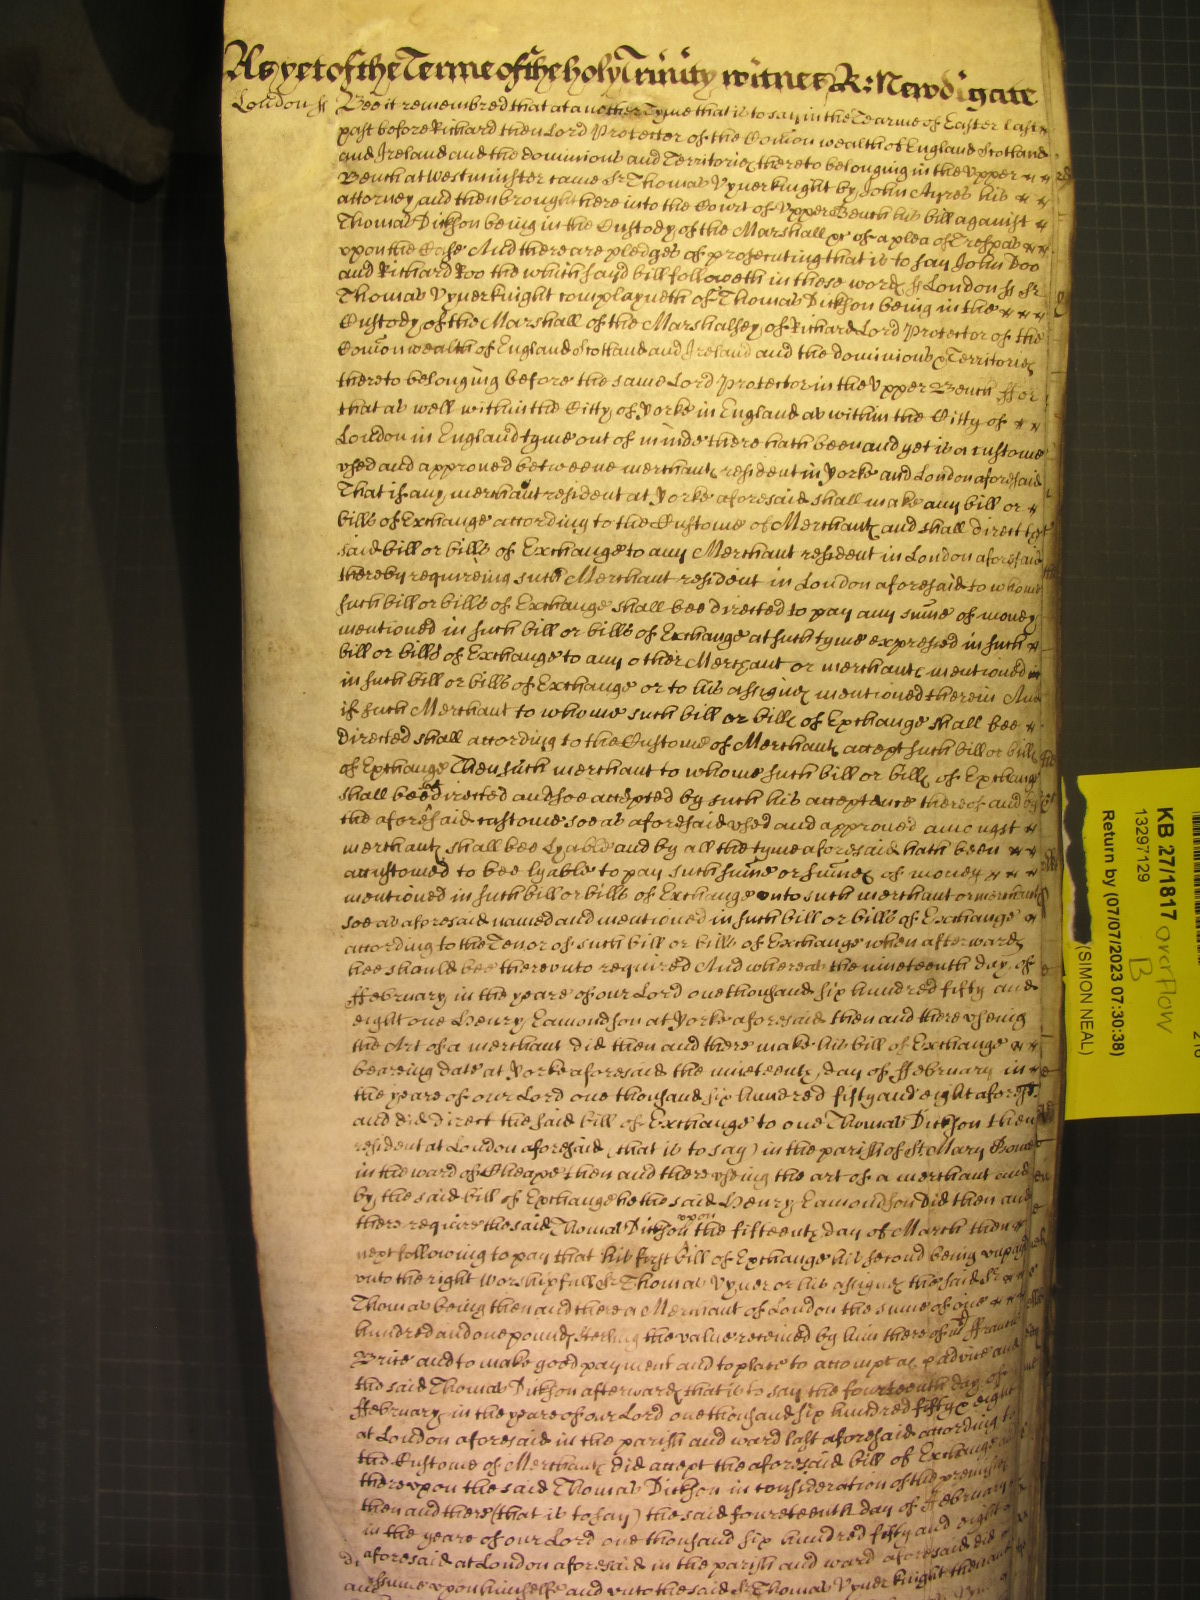 As yet of the Terme of the holy Trinity witnes R: Newdigate
London ss Bee it remembred that at another tyme that is to say in the Tearme of Easter last
past before Richard then Lord Protector of the Com̄on wealth of England Scotland
and Ireland and the dominions and Territories thereto belonging in the Vpper
Bench at Westminster came Sr Thomas Vyner knight by John Ayres his
attorney and then brought here into the Court of Vpper Bench his bill against
Thomas Dickson being in the Custody of the Marshall &c of a plea of Trespas
vpon the Case And there are pledges of prosecuting that is to say John Doo
and Richard Roo the which sayd bill followeth in these words ss London ss Sr
Thomas Vyner knight complayneth of Thomas Dickson being in the
Custody of the Marshall of the Marshalsey of Richard Lord Protector of the
Com̄on wealth of England Scotland and Ireland and the dominions & Territories
thereto belonging before the same Lord Protector in the Vpper Bench ffor
that as well within the Citty of Yorke in England as within the Citty of
London in England tyme out of minde there hath been and yet is a custome
vsed and approved betweene merchants resident in Yorke and London aforesaid
That if any merchant resident at Yorke aforesaid shall make any bill or
bills of Exchange according to the Custome of Merchants and shall direct the
said bill or bills of Exchange to any Merchant resident in London aforesaid
thereby requireing such Merchant resident in London aforesaid to whome
such bill or bills of Exchange shall bee directed to pay any sum̄e of money
mentioned in such bill or bills of Exchange at such tyme expressed in such
bill or bills of Exchange to any other Merchant or merchants mentioned in
in such bill or bills of Exchange or to his assignes mentioned therein And
if such Merchant to whome such bill or bills of Exchange shall bee
directed shall according to the Custome of Merchants accept such bill or bills
of Exchange Then such merchant to whome such bill or bills of Exchange
shall bee soe directed and soe accepted by such his acceptance thereof and by
the aforesaid custome soe as aforesaid vsed and approved amongst
merchants shall bee lyable and by all the tyme aforesaid hath been
accustomed to bee lyable to pay such sum̄e or sum̄es of money
mentioned in such bill or bills of Exchange vnto such merchant or merchants
soe as aforesaid named and mentioned in such bill or bills of Exchange
according to the Tenor of such bill or bills of Exchange when afterwards
hee should bee therevnto required And whereas the nineteenth day of
ffebruary in the yeare of our Lord one thousand six hundred fifty and
eight one Henry Eamondson at Yorke aforesaid then and there vseing
the Art of a merchant did then and there make his bill of Exchange
beareing date at Yorke aforesaid the nineteenth day of ffebruary in
the yeare of our Lord one thousand six hundred fifty and eight aforesd
and did direct the said bill of Exchange to one Thomas Dickson then
resident at London aforesaid (that is to say) in the parish of St. Mary Bowe
in the ward of Cheape then and there vseing the art of a merchant and
by the said bill of Exchange he the said Henry Eamondson did then and
there require the said Thomas Dickson vpon the fifteenth day of March then
next following to pay that his first bill of Exchange his second being vnpayd
vnto the right worshipfull Sr Thomas Vyner or his assignes the said Sr
Thomas being then and there a Merchant of London the sume of one
hundred and one pounds sterling the value received by him there of mr ffrancis
Brite and to make good payment and to place to accompt as p advice and
the said Thomas Dickson afterwards that is to say the fourteenth day of
ffebruary in the yeare of our Lord one thousand six hundred fifty & eight
at London aforesaid in the parish and ward last aforesaid according to
the Custome of Merchants did accept the aforesaid bill of Exchange
therevpon the said Thomas Dickson in consideration of the premisses
then and there (that is to say) the said fourteenth day of ffebruary
in the yeare of our Lord one thousand six hundred fifty and eight
aforesaid at London aforesaid in the parish and ward aforesaid did
assume vpon himselfe and vnto the said Sr Thomas Vyner knight then and
KB 27/1817 overflow
B
13297129
Return by (07/07/2023 07:30:38)
(SIMON NEAL)